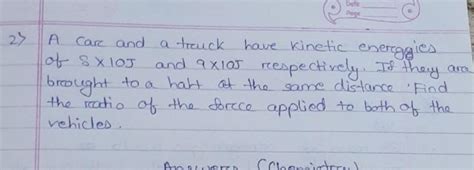 Date
Page
2> A Care and a treuck have kinetic energgies
of 8 X 10J and 9X10J respectively. If they are
brought to a halt at the same distance. Find
the ratio of the forece applied to both of the
vehicles.